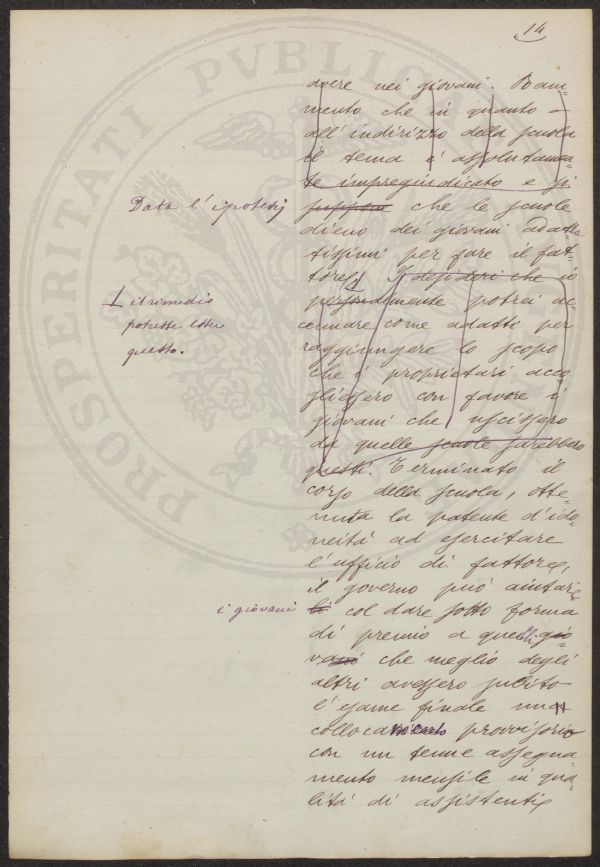 14
PROSPERITATI PVBLICAE
avere nei giovani. Ram-
mento che in quanto
all'indirizzo della scuola
il tema è assolutamen-
te impregiudicato e si
Data l'ipotesi
suppone che le scuole
dieno dei giovani adatta-
tissimi per fare il fat-
tore, I desideri che io
il rimedio
potrebbe esser
questo.
personalmente potrei ac-
cennare come adatti per
raggiungere lo scopo
che i proprietari acco-
gliessero con favore i
giovani che uscissero
da quelle scuole sarebbero
questi. Terminato il
corso della scuola, otte-
nuta la patente d'ido-
neità ad esercitare
l'ufficio di fattore,
il governo può aiutare
i giovani
li col dare sotto forma
di premio a quelli gio-
vani che meglio degli
altri avessero subito
l'esame finale un
collocamento provvisorio
con un tenue assegna-
mento mensile in qua-
lità di assistenti